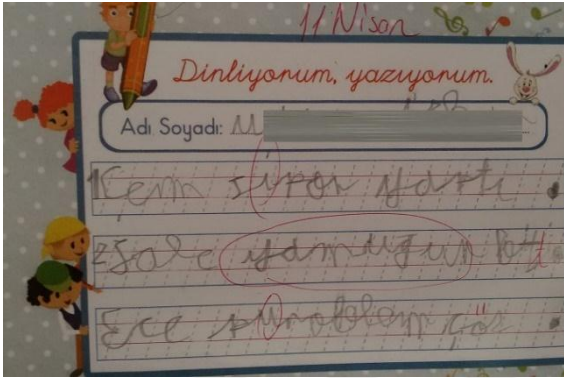 11 Nisan
Dinliyorum, yazıyorum.
Adı Soyadı:
1 Kem siror yaptı.
2 Jale yamuğun
Ece puroblem çöz.